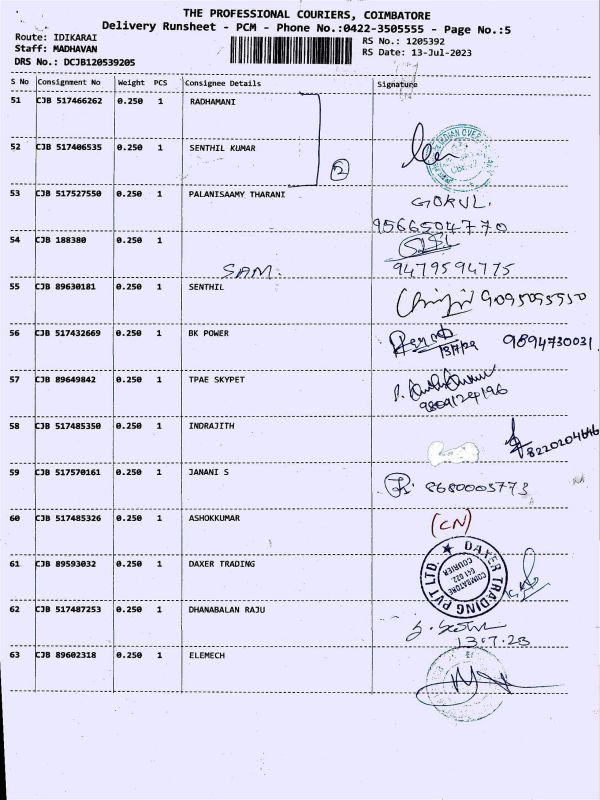 THE PROFESSIONAL COURIERS, COIMBATORE
Delivery Runsheet - PCM - Phone No.:0422-3505555 - Page No.:5
Route: IDIKARAI
RS No.: 1205392
Staff: MADHAVAN
RS Date: 13-Jul-2023
DRS No.: DCJB120539205
S No Consignment No Weight PCS Consignee Details Signature
51 CJB 517466262 0.250 1 RADHAMANI
52 CJB 517406535 0.250 1 SENTHIL KUMAR
2
53 CJB 517527550 0.250 1 PALANISAAMY THARANI GOKUL.
9566504770
54 CJB 188380 0.250 1
SAM. 9479594775
55 CJB 89630181 0.250 1 SENTHIL 9095095550
56 CJB 517432669 0.250 1 BK POWER 9894730031
57 CJB 89649842 0.250 1 TPAE SKYPET
58 CJB 517485350 0.250 1 INDRAJITH
59 CJB 517570161 0.250 1 JANANI S 8680003773
60 CJB 517485326 0.250 1 ASHOKKUMAR (CN)
61 CJB 89593032 0.250 1 DAXER TRADING
DAXER TRADING PVT LTD.
COIMBATORE
641 022.
COURIER
62 CJB 517487253 0.250 1 DHANABALAN RAJU
13.7.23
63 CJB 89602318 0.250 1 ELEMECH